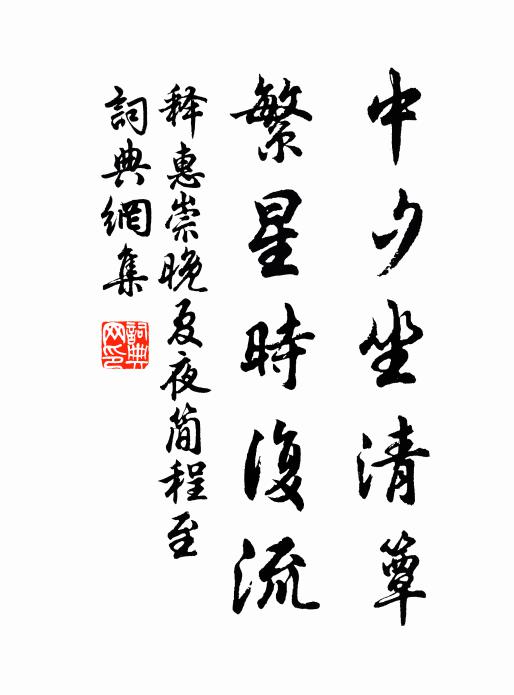 中夕坐清簟
繁星時復流
释惠崇晚夏夜簡程至
詞典網集
詞典网印